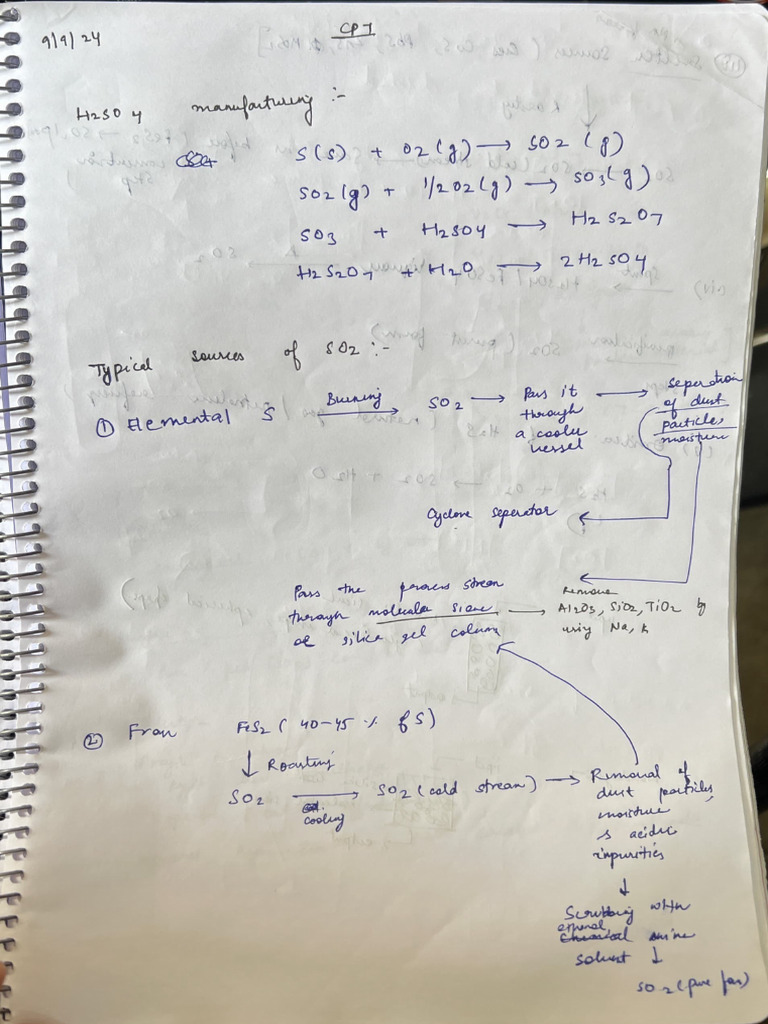 9/9/24
CPT
H2SO4 manufacturing :-
S(s) + O2(g) → SO2(g)
SO2(g) + 1/2 O2(g) → SO3(g)
SO3 + H2SO4 → H2S2O7
H2S2O7 + H2O → 2H2SO4
Typical sources of SO2 :-
① Elemental S Burning → SO2 → Pass it through a cooler vessel → seperation of dust particles, moisture
Cyclone seperator
Pass the process stream
through molecular sieve → remove Al2O3, SiO2, TiO2 by
or silica gel column using Na, K
② From FeS2 (40-45 % of S)
↓ Roasting
SO2 → cooling SO2 (cold stream) → Removal of
dust particles,
moisture
& acidic
impurities
↓
Scrubbing with
amine
solvent ↓
SO2 (pure